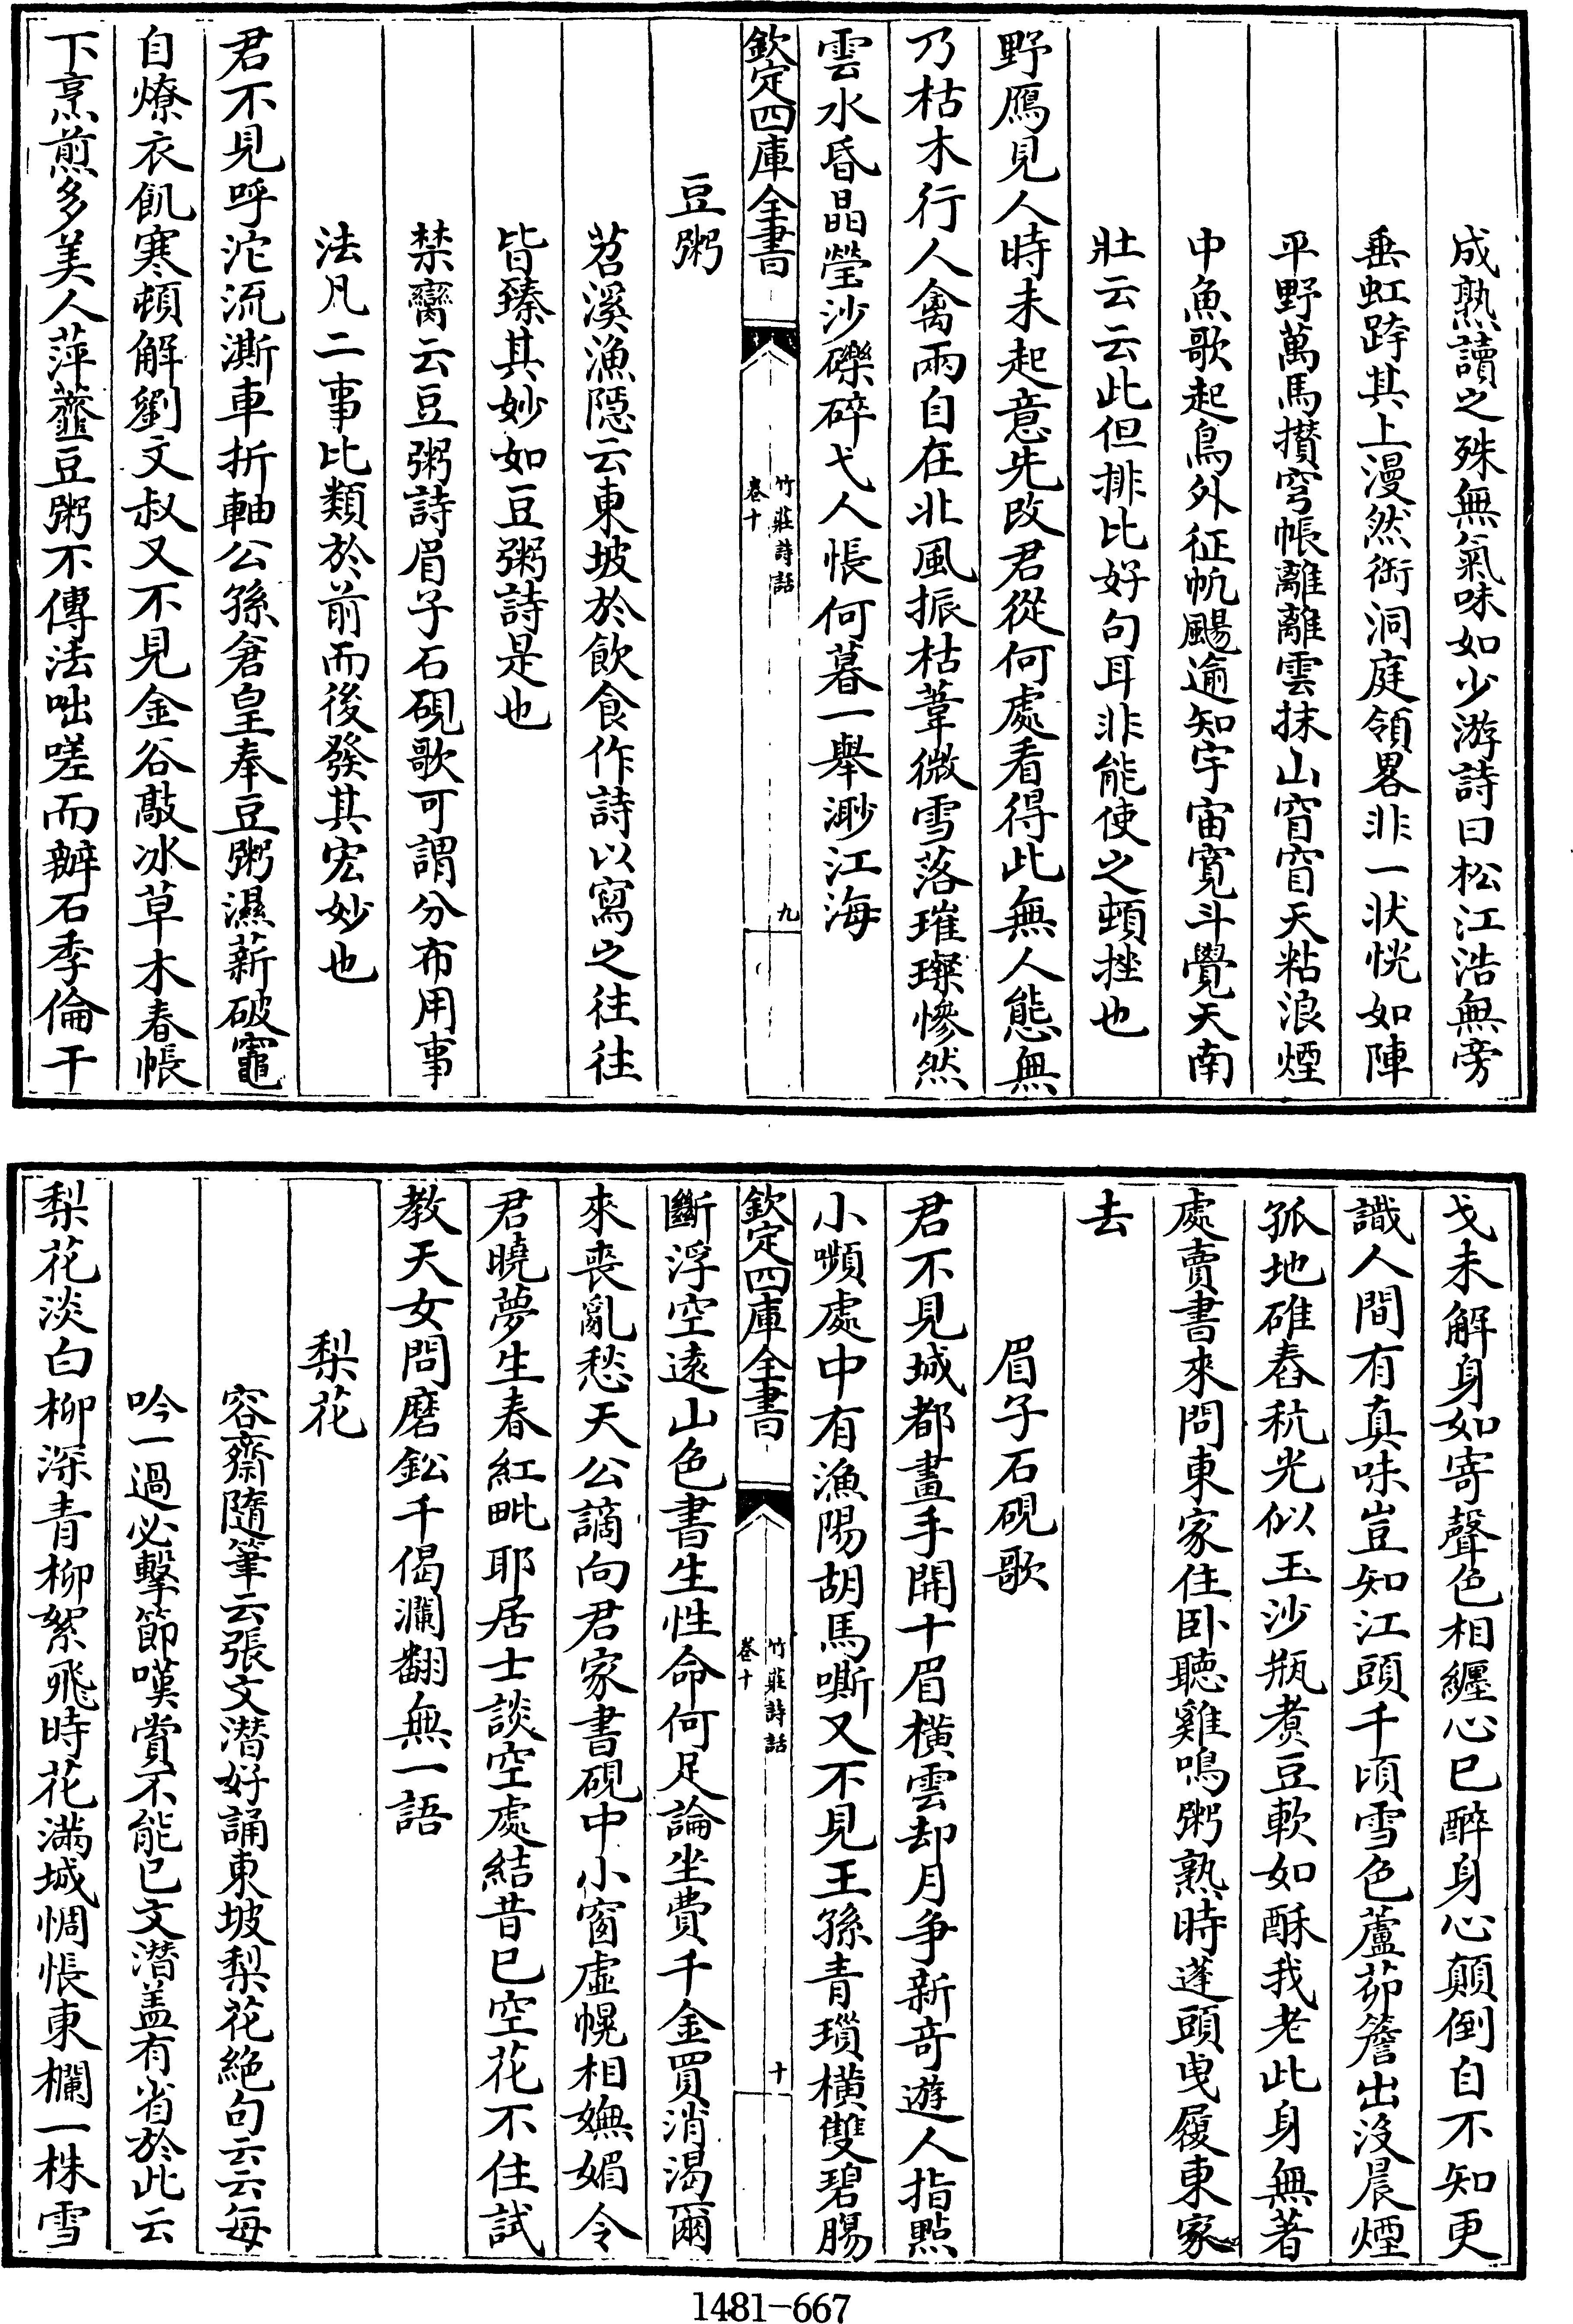 成熟讀之殊無氣味如少游詩曰松江浩無旁
垂虹跨其上漫然銜洞庭領畧非一狀恍如陣
平野萬馬攢穹帳離離雲抹山窅窅天粘浪煙
中魚歌起鳥外征帆颺逾知宇宙寛斗覺天南
壯云云此但排比好句耳非能使之頓挫也
野鴈見人時未起意先改君從何處看得此無人態無
乃枯木行人禽兩自在北風振枯葦微雪落璀璨慘然
雲水昏晶瑩沙礫碎弋人悵何暮一舉渺江海
欽定四庫全書
竹莊詩話
卷十
九
豆粥
苕溪漁隱云東坡於飲食作詩以寫之往往
皆臻其妙如豆粥詩是也
禁臠云豆粥詩眉子石硯歌可謂分布用事
法凡二事比類於前而後發其宏妙也
君不見呼沱流澌車折軸公孫倉皇奉豆粥濕薪破竈
自燎衣飢寒頓解劉文叔又不見金谷敲冰草木春帳
下烹煎多美人萍虀豆粥不傳法咄嗟而辦石季倫干
戈未解身如寄聲色相纏心已醉身心顛倒自不知更
識人間有真味豈知江頭千頃雪色蘆茆簷出沒晨煙
孤地碓舂秔光似玉沙瓶煮豆軟如酥我老此身無著
處賣書來問東家住卧聽雞鳴粥熟時蓬頭曳履東家
去
眉子石硯歌
君不見城都畫手開十眉橫雲却月争新奇遊人指點
小嚬處中有漁陽胡馬嘶又不見王孫青瑣橫雙碧腸
欽定四庫全書
竹莊詩話
卷十
十
斷浮空遠山色書生性命何足論坐費千金買消渴爾
來喪亂愁天公謫向君家書硯中小窗虛幌相嫵媚令
君曉夢生春紅毗耶居士談空處結昔已空花不住試
教天女問磨鈆千偈瀾翻無一語
梨花
容齋隨筆云張文潛好誦東坡梨花絶句云云每
吟一過必擊節嘆賞不能已文潛盖有省於此云
梨花淡白柳深青柳絮飛時花滿城惆悵東欄一株雪
1481-667